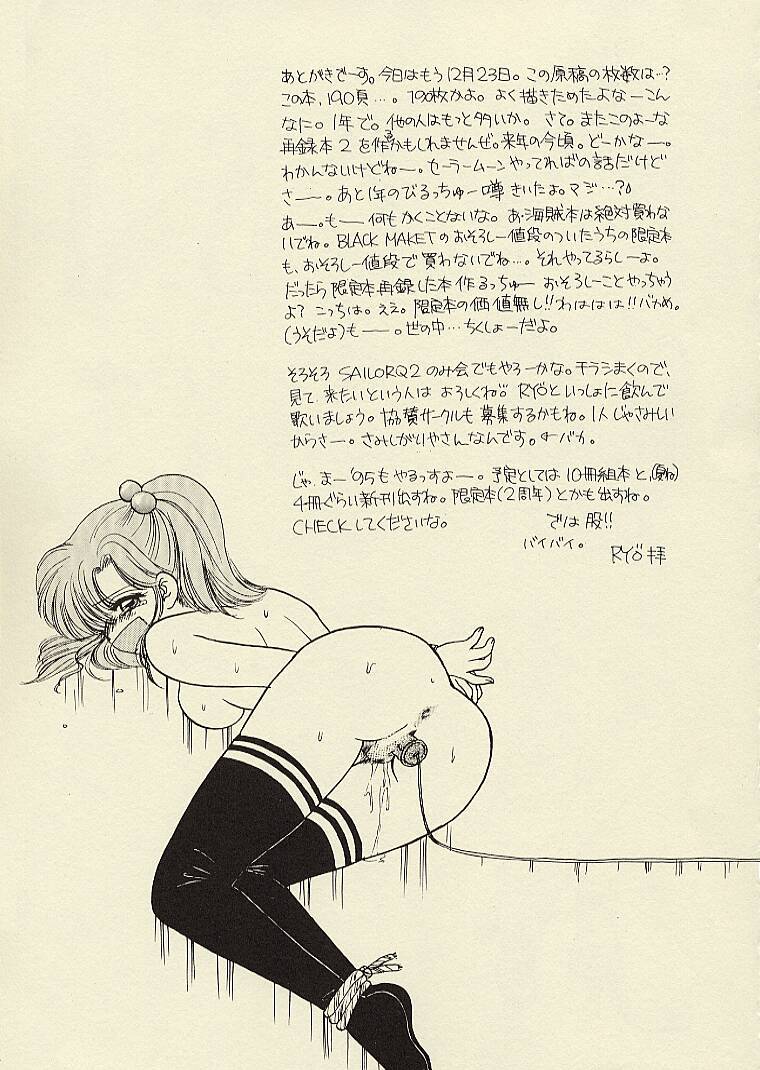 あとがきでーす。今日はもう12月23日。この原稿の枚数は…?
この本、190頁…。190枚かよ。よく描きためたよなーこん
なに。1年で。他の人はもっと多いか。さて。またこのよーな
再録本2を作るかもしれませんぜ。来年の今頃。どーかなー。
わかんないけどねー。セーラームーンやってればの話だけど
さー。あと1年のびるっちゅー噂きいたよ。マジ…?
あー。もー何もかくことないな。あ、海賊本は絶対買わな
いでね。BLACK MAKETのおそろしー値段のついたうちの限定本
も、おそろしー値段で買わないでね…。それやってるらしーよ。
だったら限定本再録した本作るっちゅーおそろしーことやっちゃう
よ?こっちは。ええ。限定本の価値無し!!わははは!!バカめ。
(うそだよ)もー。世の中…ちくしょーだよ。
そろそろSAILORQ2のみ会でもやろーかな。チラシまくので、
見て来たいという人はよろしくね。RYÖといっしょに飲んで
歌いましょう。協賛サークルも募集するかもね。1人じゃさみしい
からさー。さみしがりやさんなんです。←バカ。
じゃ、まー'95もやるっすよー。予定としては10冊組本と、(夏ね)
4冊ぐらい新刊出すね。限定本(2周年)とかも出すね。
CHECKしてくださいな。 では股!!
バイバイ。 RYÖ拝